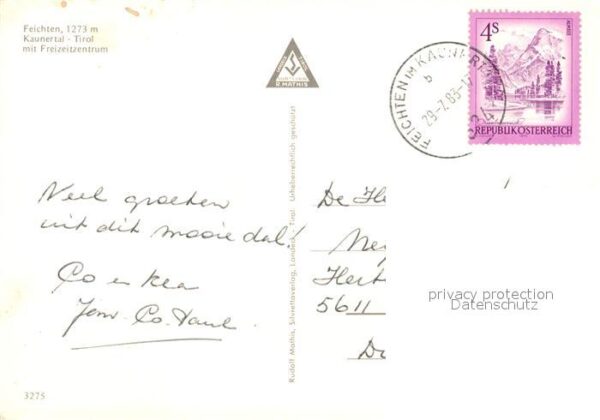 Feichten, 1273 m
Kaunertal - Tirol
mit Freizeitzentrum
R. MATHIS
4S
REPUBLIK ÖSTERREICH
FEICHTEN IM KAUN
b
29-7.83-17
Veel groeten
uit dit mooie dal!
Co en
Co.
Rudolf Mathis, Silvrettaverlag, Landeck - Tirol. Urheberrechtlich geschützt
De He
Hert
5611
privacy protection
Datenschutz
3275